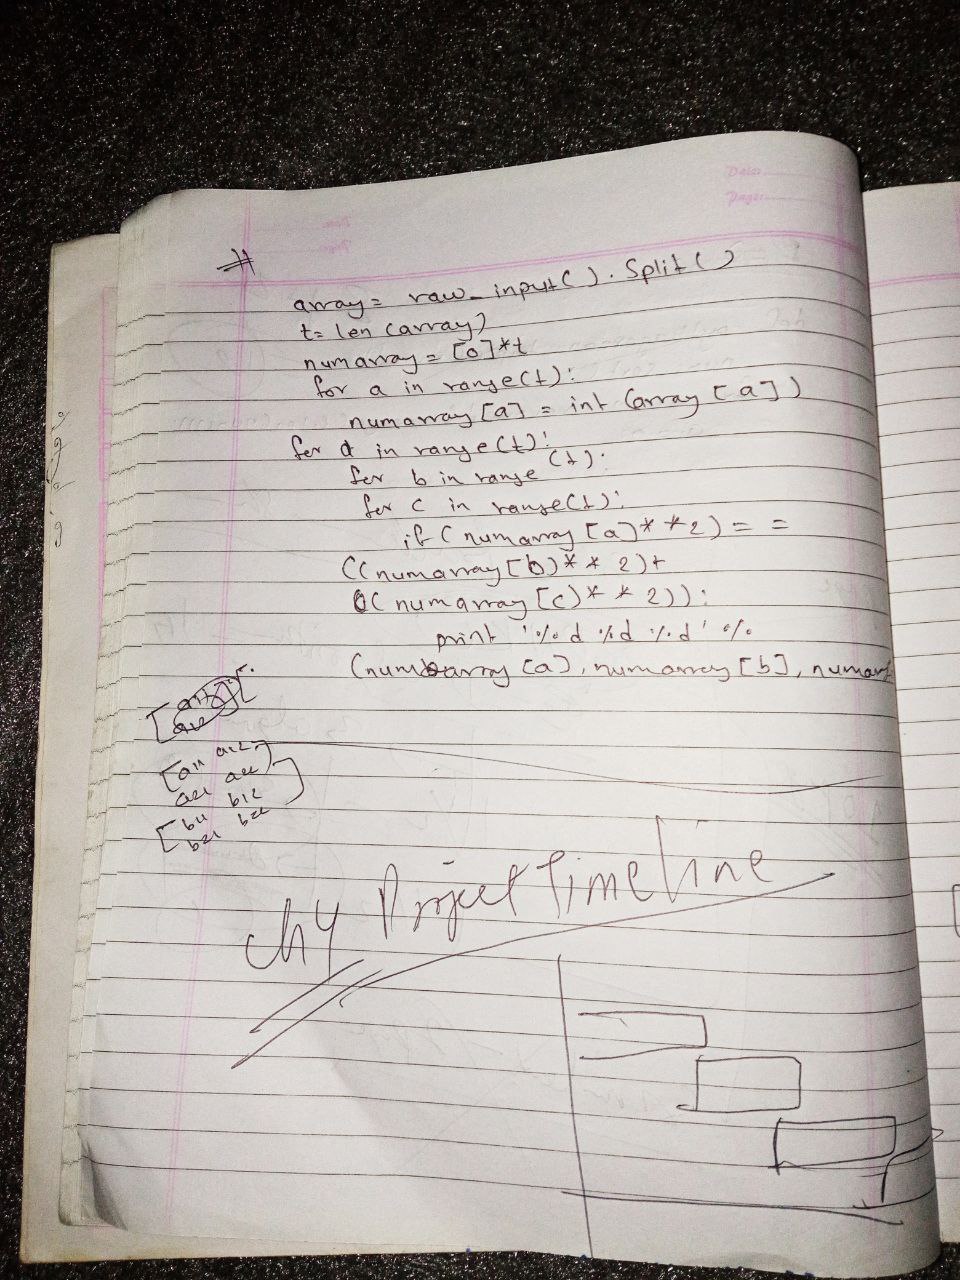 Date:
Page:
#
array = raw_input(). Split()
t= len (array)
numarray = [0]*t
for a in range(t):
numarray [a] = int (array [a])
for a in range(t):
for b in range (t):
for c in range(t):
if (numarray [a]**2) = =
((numarray [b)** 2)+
(( numarray [c)** 2)):
print '%d %d %d' %
(numarray [a], numarray [b], numarr
[a11 a12]
a21 a22
[b11 b12]
b21 b22
Ch 4 Project Timeline